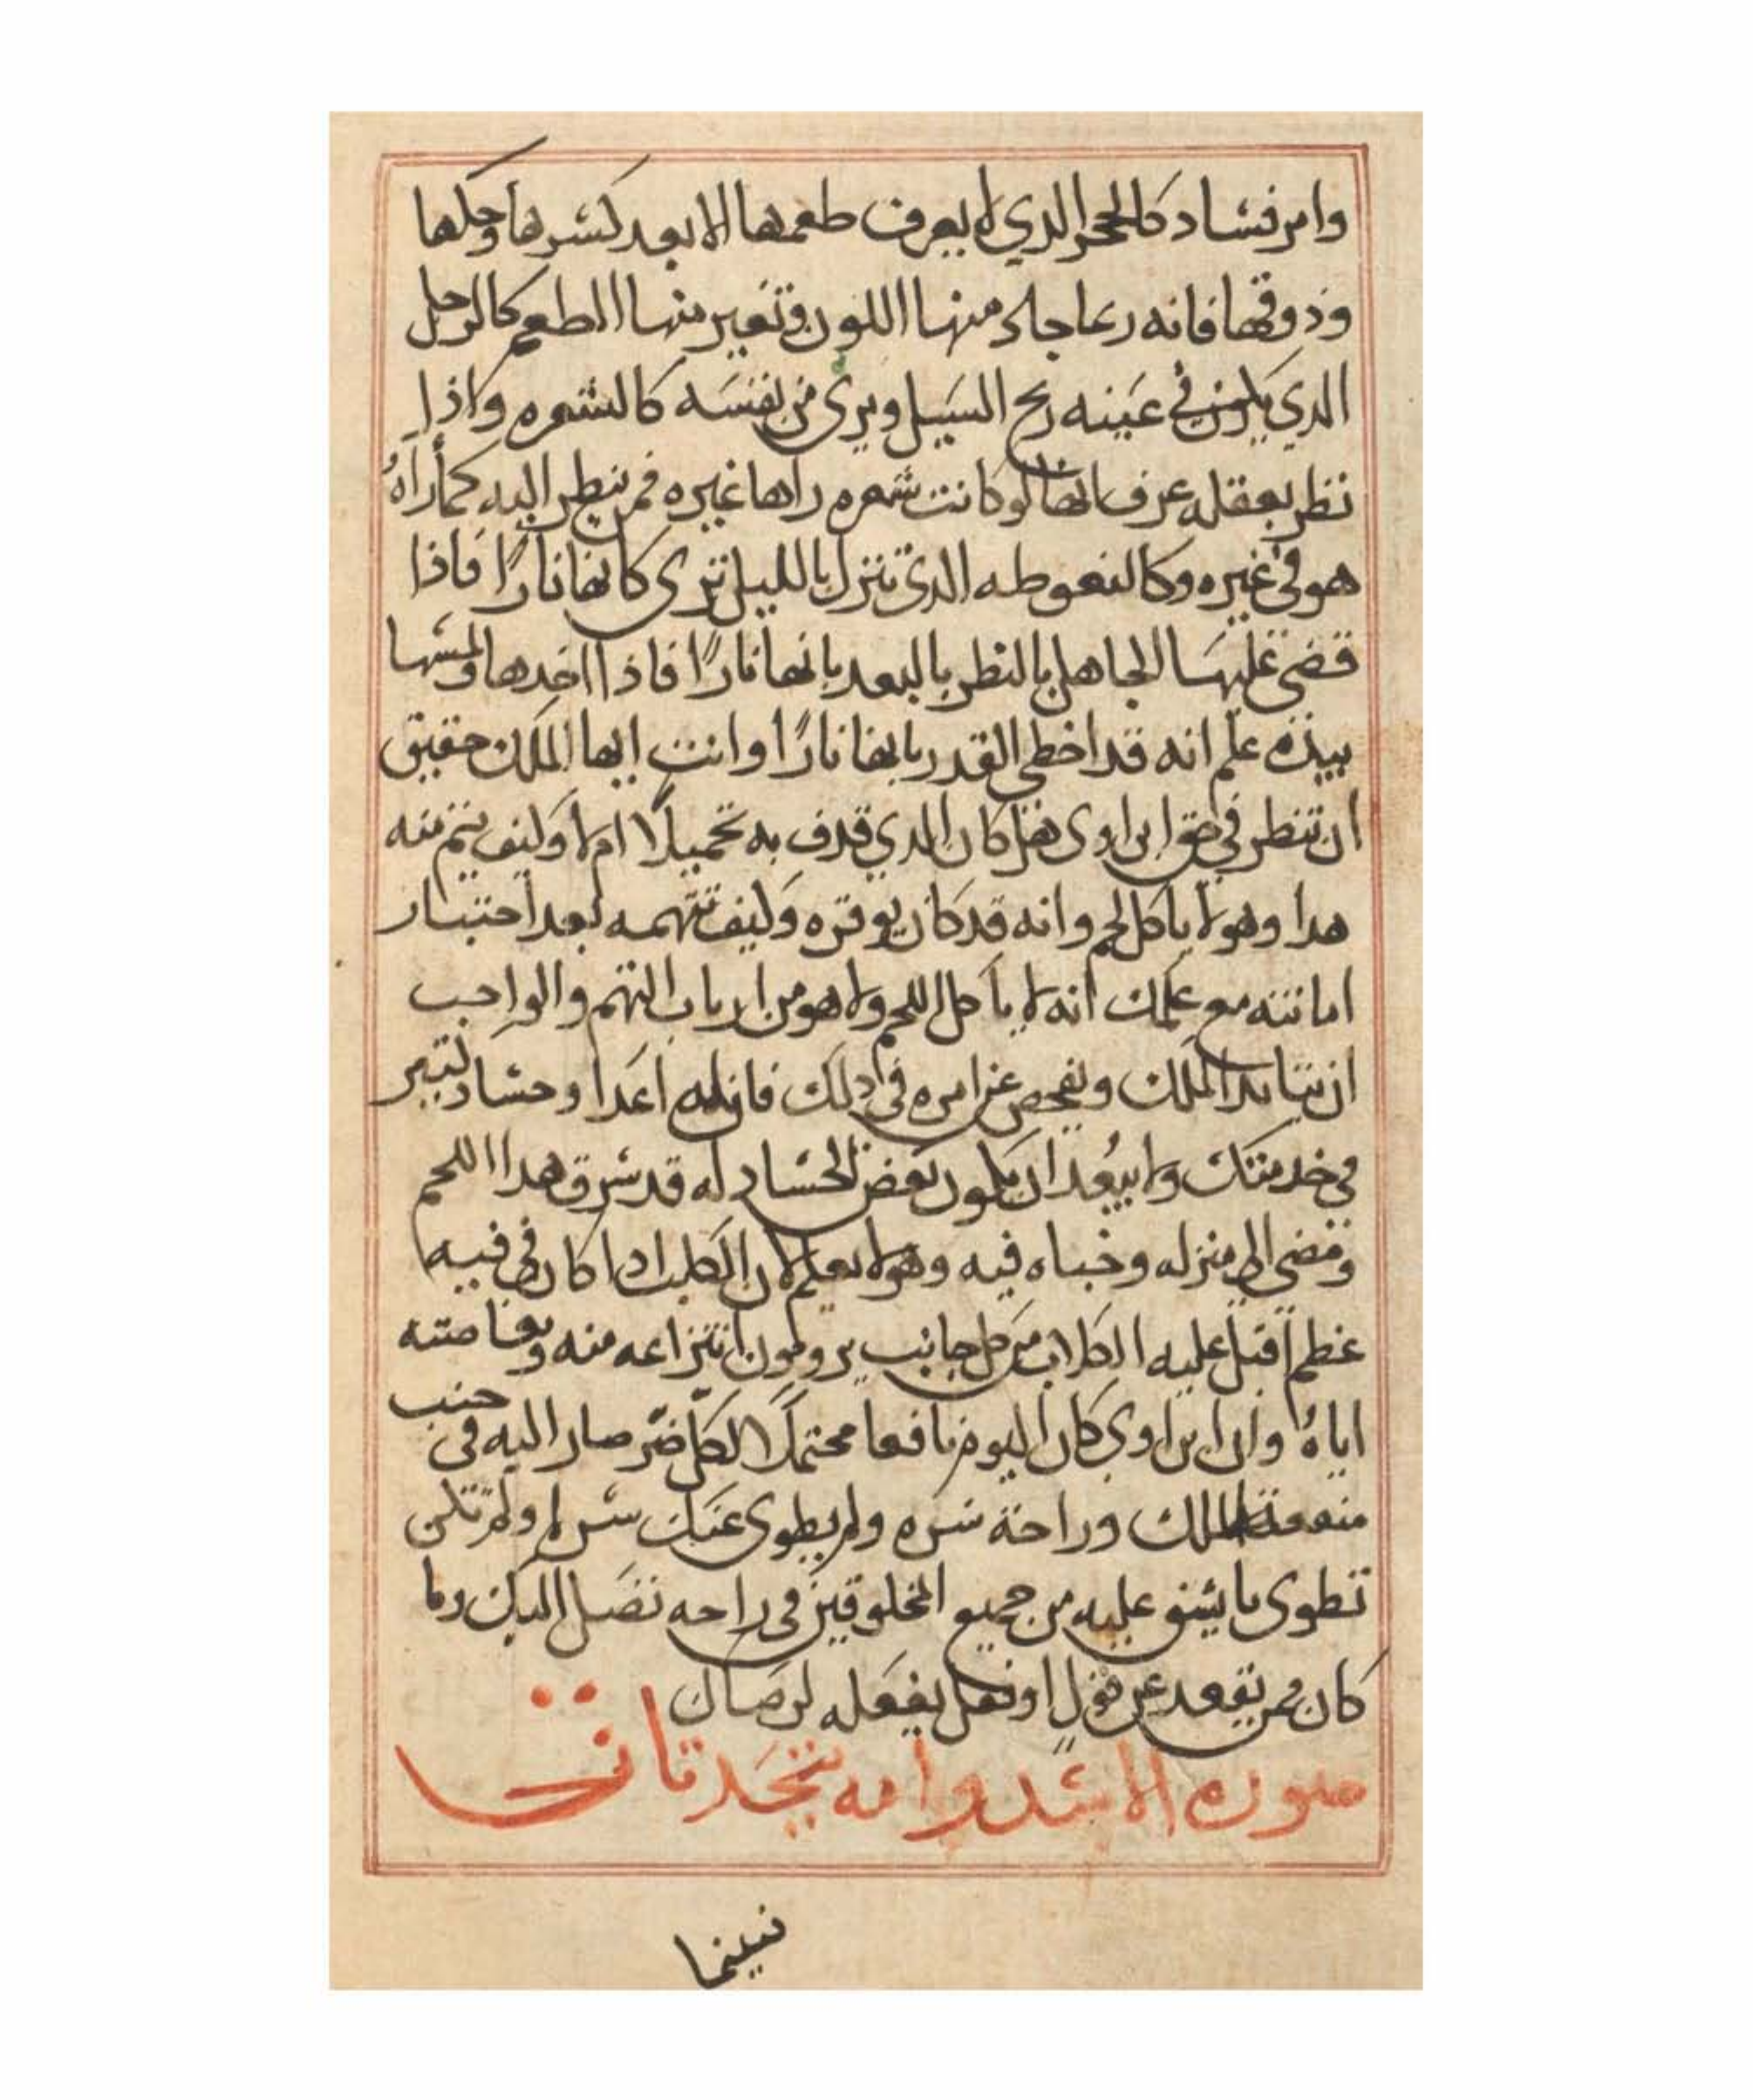 وامر فساد كالحجر الدي لا يعرف طعمها الا بعد كسرها وحكها
وذوقها فانه ربما جاد منها اللون وتغير منها الطعم كالرجل
الدي يكون في عينه ريح السيل ويرى من نفسه كالشعره واذا
نظر بعقله عرف انها لو كانت شعره راها غيره فمن ينظر اليه كما رآهُ
هو في غيره وكا الدى تنزل بالليل ترى كانها نارًا فاذا
قضى عليها الجاهل بالنظر بالبعد بانها نارًا فاذا اخدها ومسها
بيده علم انه قد اخطى القدر بانها نارًا وانت ايها الملك حقيق
ان تنظر في حق ابن اوى هل كان الدي قدف به تحميلًا ام لا وكيف يتم منه
هدا وهو لا ياكل لحم وانه قد كان يوقره وكيف تتهمه بعد اختبار
امانته مع علمك انه لا يأكل اللحم ولا هو من ارباب التهم والواجب
ان الملك ويفحص عن امره في دلك فان له اعدا وحساد كتير
في خدمتك ولا يبعُد ان يكون بعض الحساد له قد سرق هدا اللحم
ومضى الى منزله وخباه فيه وهو لا يعلم لان الكلب ادا كان في فيه
عظم اقبل عليه الكلاب من كل جانب يرومون انتزاعه منه
اياهُ وان ابن اوي كان اليوم نافعا محتملًا لكل ضر صار اليه في جنب
منفعة الملك وراحة سره ولم يطوى عنك سر ولم تكن
تطوى ما يشق عليه من جميع المخلوقين في راحه
كان ممن يقعد عن قول او فعل يفعله
صوره الاسد وامه
فبينما